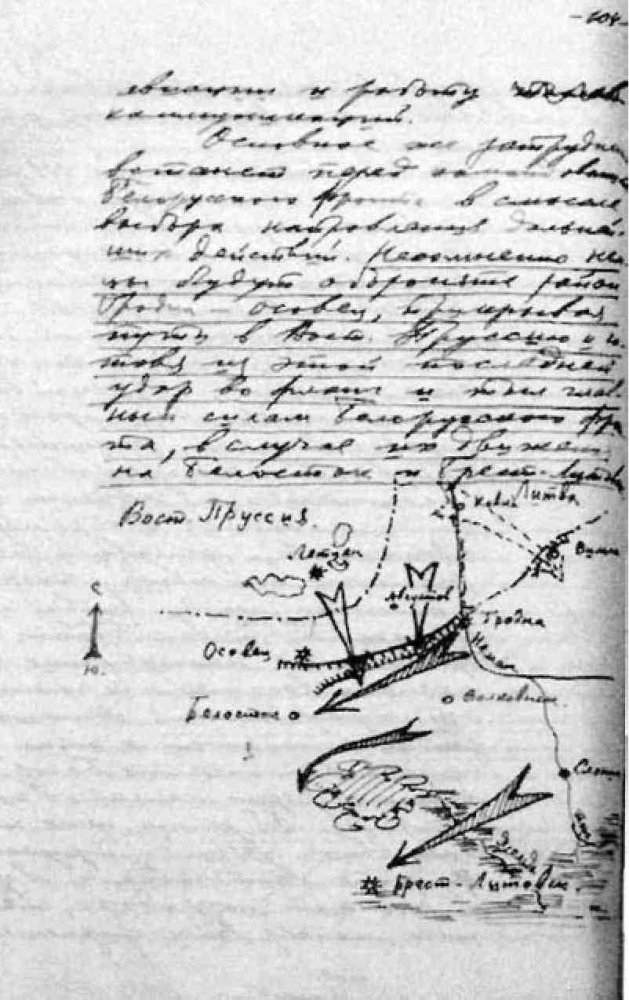 и работу
коммуникаций.
Основное же затрудне
встанет перед командовани
Белорусского фронта в смысле
выбора направления дальней-
ших действий. Несомненно не
мцы будут оборонять район
Гродна — Осовец, прикрывая
пути в Вост. Пруссию и го
товя из этой последней
удар во фланг и тыл глав
ным силам Белорусского фро
та, в случае их движени
на Белосток и Брест-Литовск
Литва
Вост. Пруссия.
Летцен
Августов
С
Гродна
Осовец
Неман
Ю.
Белосток
Волковыск
Брест-Литовск